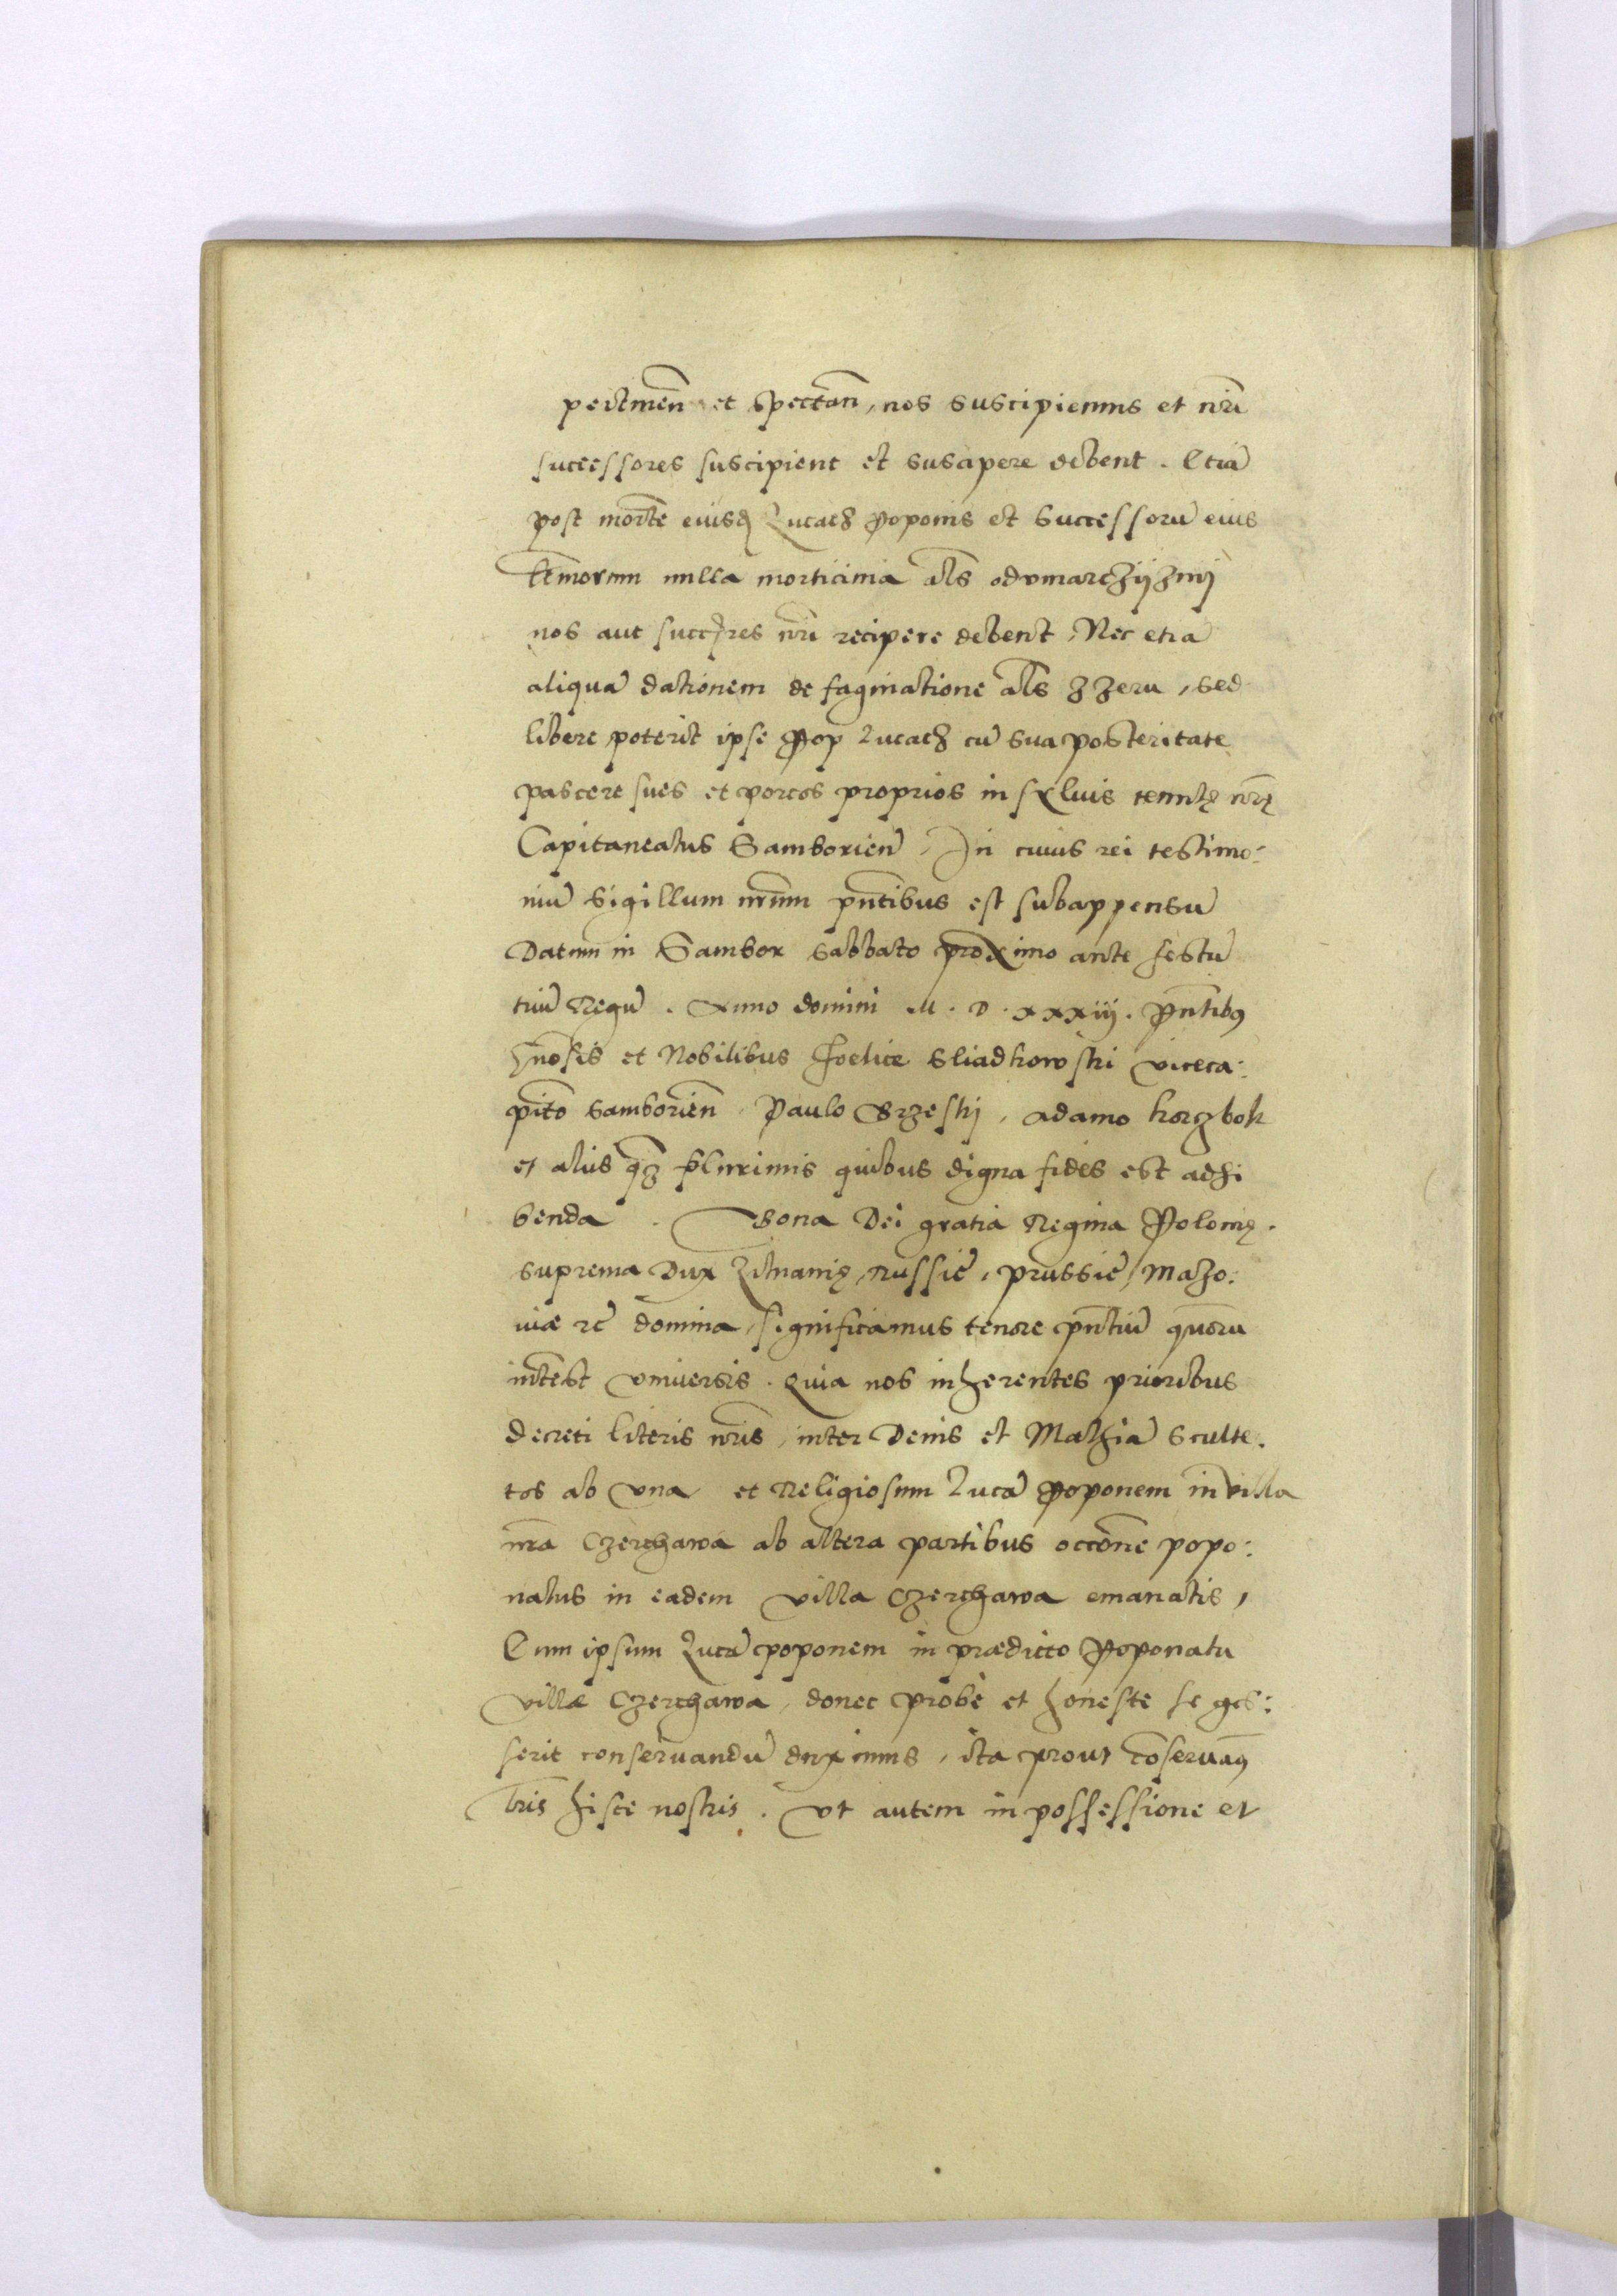 pertinen̄ et spectan̄, nos suscipiemus et nr̄i
successores suscipient et suscipere debent. Etiā
post mortē eiusd Lucacz Poponis et successorū eius
l̄timorum nulla morticinia al̄s odvmarczijznij
nos aut succ̄res nr̄i recipere debent, Nec etiā
aliquā dationem de saginatione al̄s zzeru, sed
libere poterit ipse Pop Lucacz cū sua posteritate
pascere sues et porcos proprios in sylvis tenutę nr̄ę
Capitaneatus Samborien̄, In cuius rei testimo:
niū sigillum nr̄um pn̄tibus est subappensū
Datum in Sambor sabbato proximo ante festū
triū Regū. Anno domini M.D.xxxiij. Pn̄tibꝯ
Gn̄osis et Nobilibus Foelice Sliadkowski viceca:
pit̄o Samborien̄, Paulo Brzeskj, Adamo Korzbok
et aliis qꝫ pl̄urimis quibus digna fides est adhi
benda. Bona Dei gratia Regina Polonię.
suprema Dux Litvanię, Russie, Prussie, Mazo:
uiæ ꝛc̄ domina, significamus tenore pn̄tiū quorū
int̄est vniuersis. Quia nos inherentes prioribus
decreti literis nr̄is, inter Denis et Mathiā sculte.
tos ab vna et Religiosum Lucā Poponem in villa
nr̄a Czerchawa ab altera partibus occōne popo:
natus in eadem villa Czerchawa emanatis,
Eum ipsum Lucā Poponem in prædicto Poponatu
villæ Czerchawa, donec probè et honeste se ges:
serit conseruandū duximus, ita prout cōseruamꝯ
l̄ris hisce nostris. Vt autem in possessione et